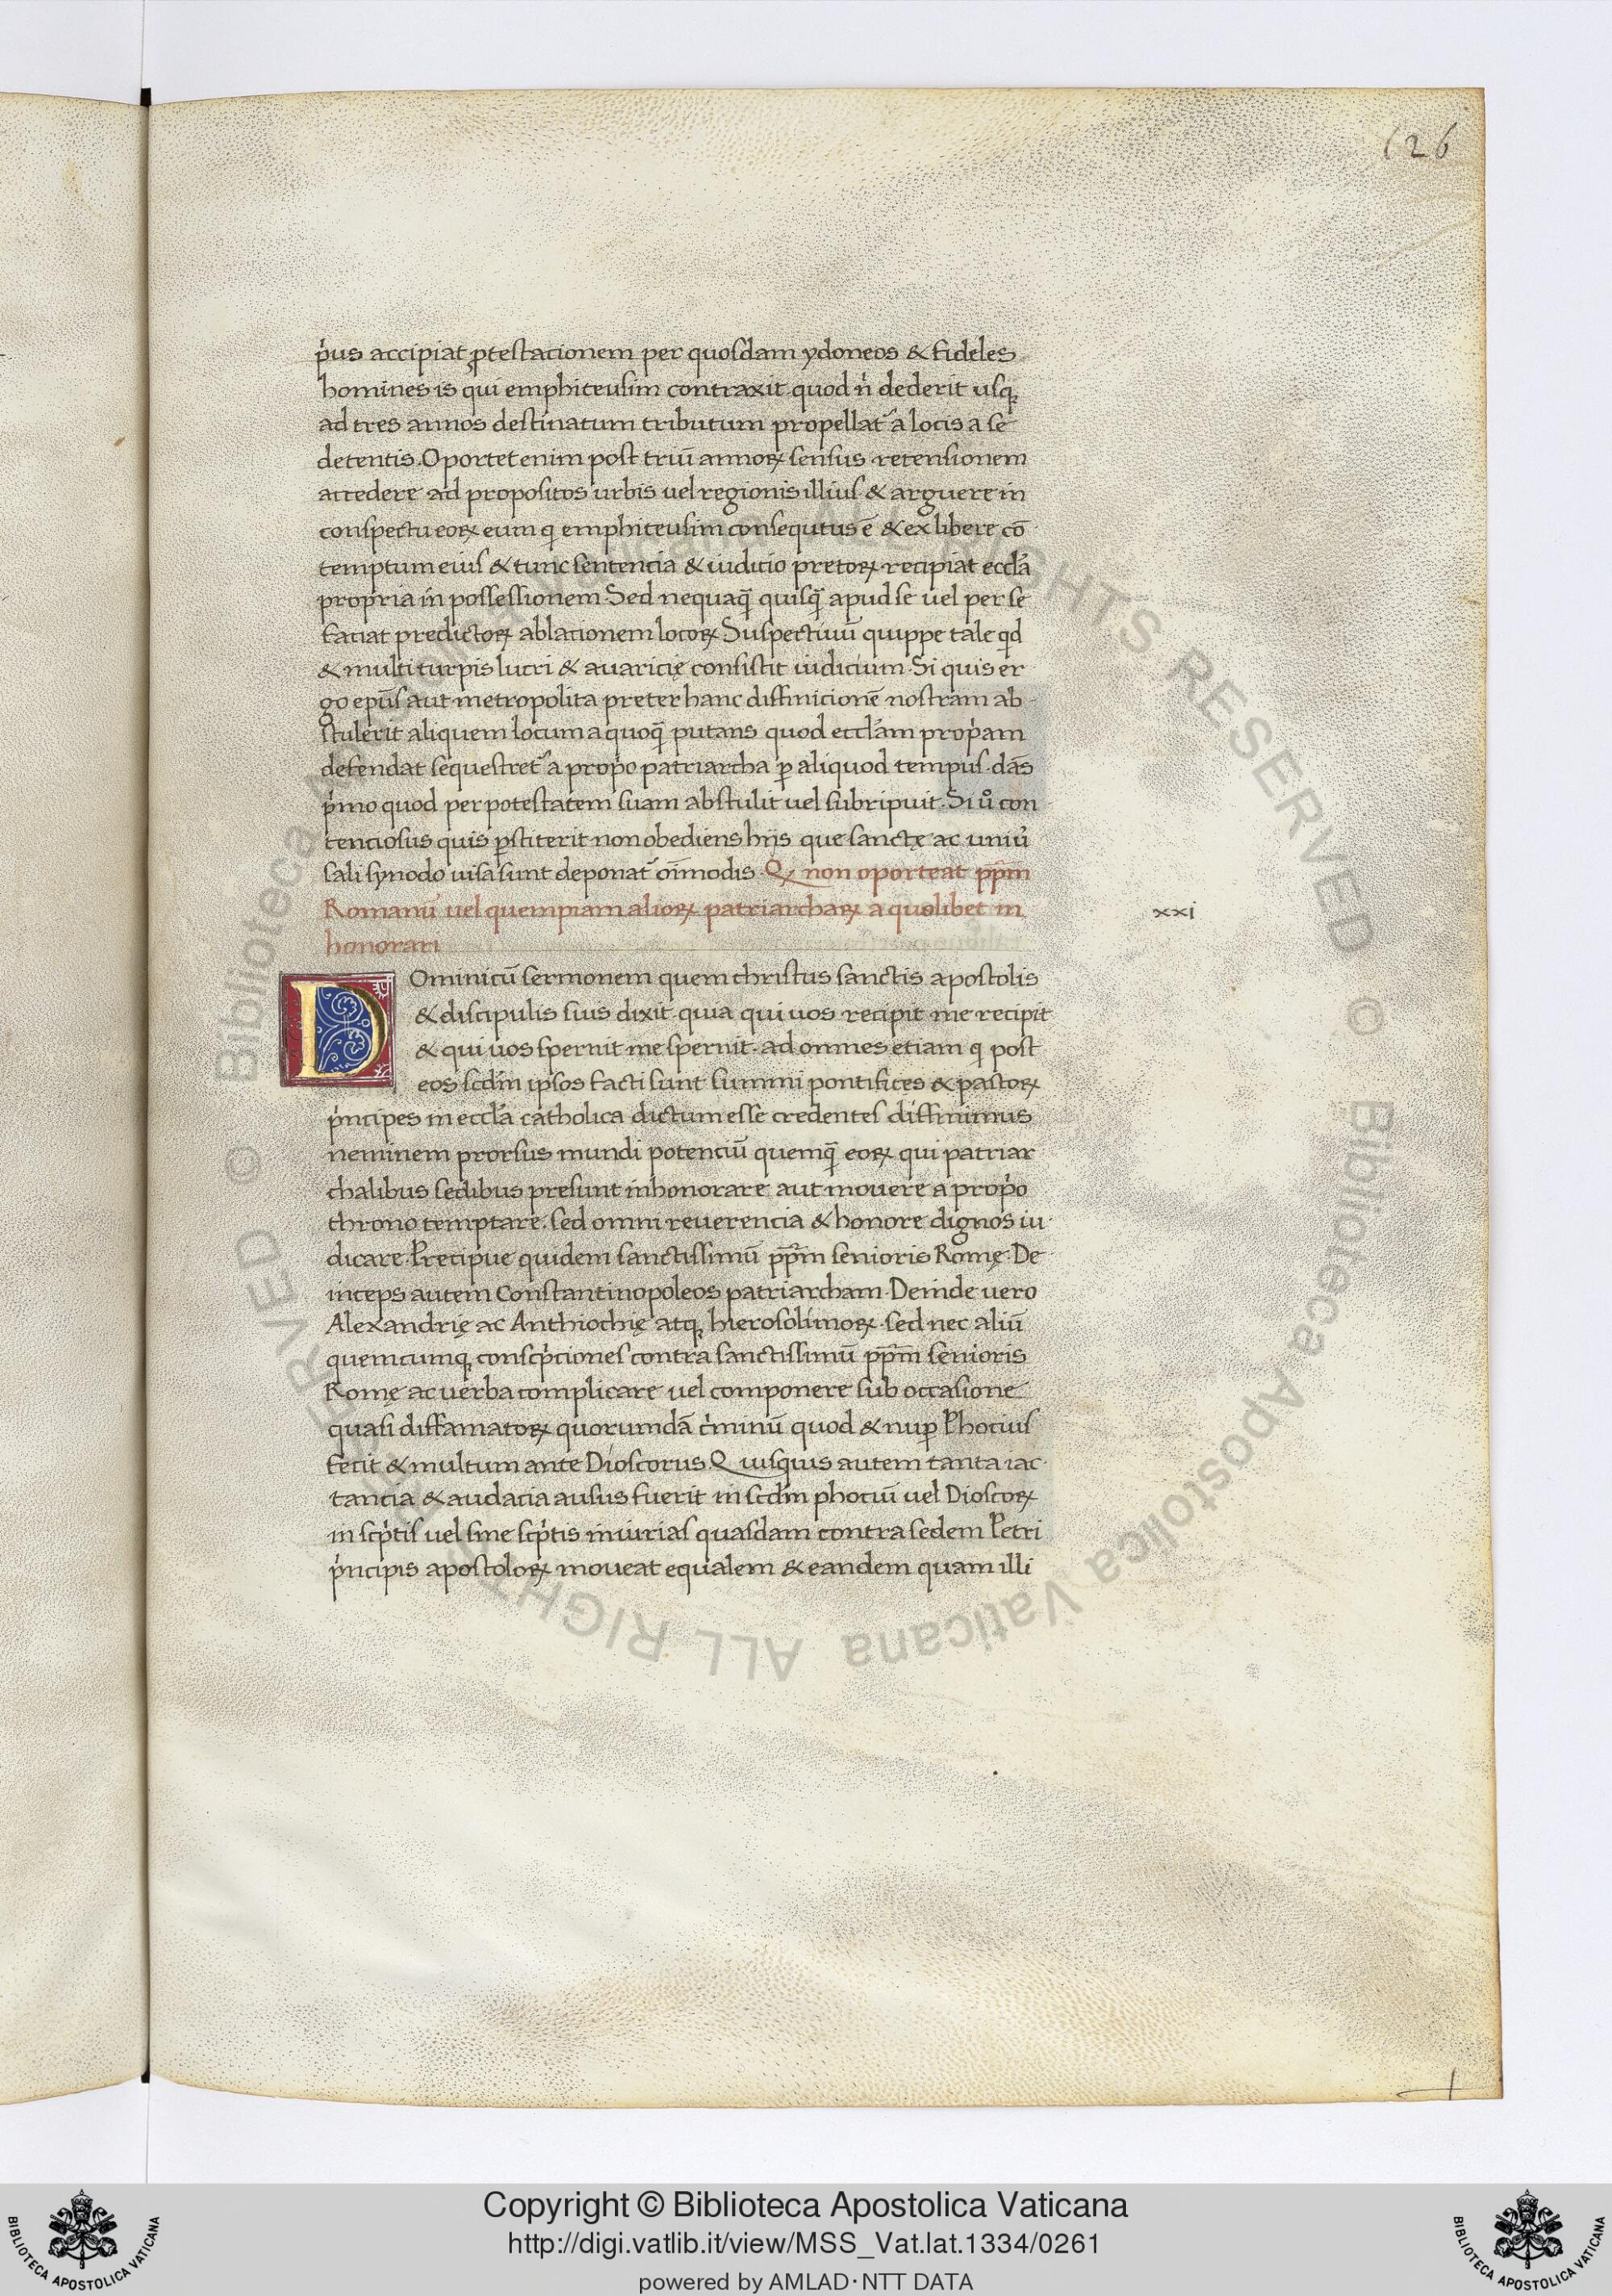 126
p̓us accipiat ꝓtestacionem per quosdam ydoneos & fideles
homines is qui emphiteusim contraxit quod n̓ dederit usqꝫ
ad tres annos destinatum tributum propellat᷑ a locis a se
detentis. Oportet enim post triū annoꝝ sensus retensionem
accedere ad propositos urbis uel regionis illius & arguere in
conspectu eoꝝ eum q̓ emphiteusim consequtus ē & exlibere cō
temptum eius & tunc sentencia & iudicio pretoꝝ recipiat eccl̓a
propria in possessionem. Sed nequaq̄ quisq̄ apud se uel per se
faciat predictoꝝ ablacionem locoꝝ Suspectiuū quippe tale qd̓
& multi turpis lucri & auaricię consistit iudicium. Si quis er
go ep̄us aut metropolita preter hanc diffinicionē nostram ab
stulerit aliquem locum a quoq̄ putans quod eccl̓am prop̓am
defendat sequestret᷑ a prop̓o patriarcha ꝑ aliquod tempus. dās
p̓mo quod per potestatem suam abstulit uel subripuit. Si u̓o con
tenciosus quis ꝑstiterit non obediens hijs que sanctę ac uniu̓
sali synodo uisa sunt deponat᷑ oīmodis. Qꝫ non oporteat pp̄m
Romanū uel quempiam alioꝝ patriarchaꝝ a quolibet in
honorari
xxi
DOminicū sermonem quem christus sanctis apostolis
& discipulis suis dixit quia qui uos recipit me recipit
& qui uos spernit me spernit. ad omnes etiam q̓ post
eos scdm̄ ipsos facti sunt summi pontifices & pastoꝝ
p̓ncipes in eccl̓a catholica dictum esse credentes diffinimus
neminem prorsus mundi potenciū quemq̄ eoꝝ qui patriar
chalibus sedibus presunt inhonorare aut mouere a prop̓o
throno temptare. sed omni reuerencia & honore dignos iu
dicare. Precipue quidem sanctissimū pp̄m senioris Romę. De
inceps autem Constantinopoleos patriarcham. Deinde uero
Alexandrię ac Anthiochię atqꝫ hierosolimoꝝ. sed nec aliū
quemcumqꝫ conscp̓ciones contra sanctissimū pp̄m senioris
Romę ac uerba complicare uel componere sub occasione
quasi diffamatoꝝ quorumdā c̓minū quod & nuꝑ Photius
fecit & multum ante Dioscorus. Quisquis autem tanta iac
tancia & audacia ausus fuerit in scdm̄ photiū uel Dioscoꝝ
in scp̓tis uel sine scp̓tis iniurias quasdam contra sedem Petri
p̓ncipis apostoloꝝ moueat equalem & eandem quam illi
Copyright © Biblioteca Apostolica Vaticana
http://digi.vatlib.it/view/MSS_Vat.lat.1334/0261
powered by AMLAD·NTT DATA